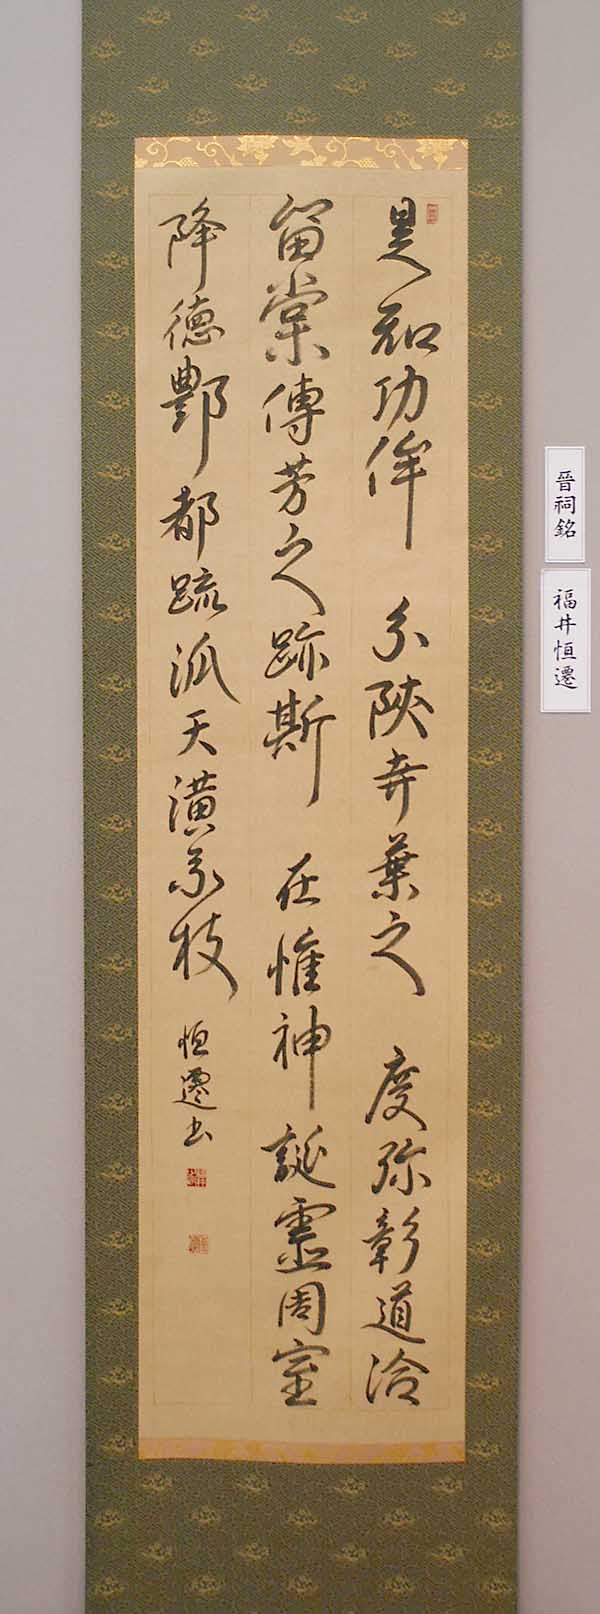 晉祠銘
福井恒遷
是知功侔分陝奕葉之慶弥彰道洽
留棠傳芳之跡斯在惟神誕靈周室
降德酆都疏派天潢承枝 恒遷書